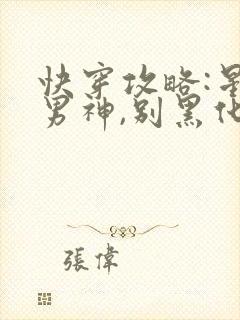 快穿攻略:
男神,别黑
張偉